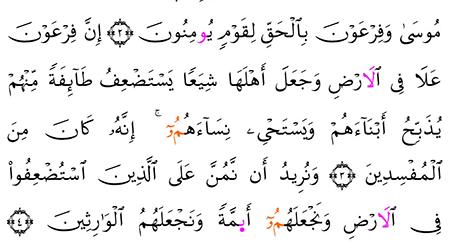 مُوسَىٰ وَفِرْعَوْنَ بِٱلْحَقِّ لِقَوْمٍ يُومِنُونَ ﴿٢﴾ إِنَّ فِرْعَوْنَ
عَلَا فِى ٱلَارْضِ وَجَعَلَ أَهْلَهَا شِيَعًا يَسْتَضْعِفُ طَآئِفَةً مِّنْهُمْ
يُذَبِّحُ أَبْنَآءَهُمْ وَيَسْتَحْىِۦ نِسَآءَهُمُۥٓ ۚ إِنَّهُۥ كَانَ مِنَ
ٱلْمُفْسِدِينَ ﴿٣﴾ وَنُرِيدُ أَن نَّمُنَّ عَلَى ٱلَّذِينَ ٱسْتُضْعِفُوا۟
فِى ٱلَارْضِ وَنَجْعَلَهُمُۥٓ أَيِمَّةً وَنَجْعَلَهُمُ ٱلْوَٰرِثِينَ ﴿٤﴾